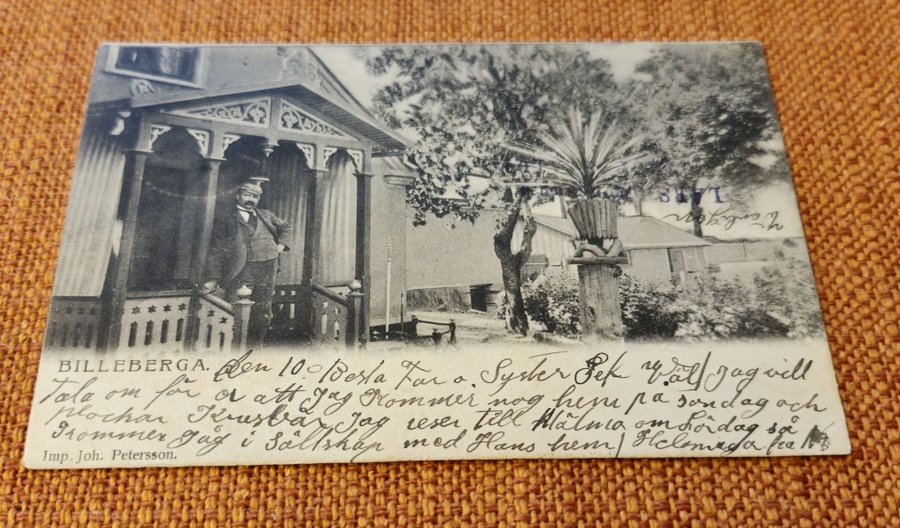 BILLEBERGA. den 10 Bästa Far o. Syster Sek Jag vill
Tala om för er att Jag Kommer nog hem på söndag och
plockar Krusbär Jag reser till Malmö om Lördag så
Kommer Jag i Sällskap med Hans hem
Imp. Joh. Petersson.